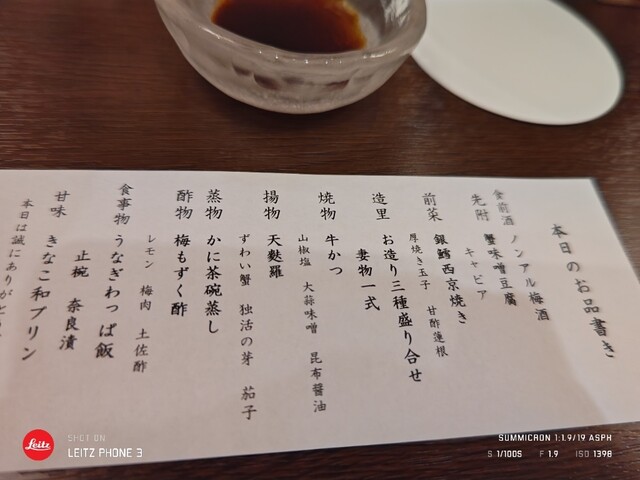 本日のお品書き
食前酒 ノンアル梅酒
先附 蟹味噌豆腐
キャビア
前菜 銀鱈西京焼き
厚焼き玉子 甘酢蓮根
造里 お造り三種盛り合せ
妻物一式
焼物 牛かつ
山椒塩 大蒜味噌 昆布醤油
揚物 天麩羅
ずわい蟹 独活の芽 茄子
蒸物 かに茶碗蒸し
酢物 梅もずく酢
レモン 梅肉 土佐酢
食事物 うなぎわっぱ飯
止椀 奈良漬
甘味 きなこ和プリン
本日は誠にありがとう
Leitz
SHOT ON
LEITZ PHONE 3
SUMMICRON 1:1.9/19 ASPH
S 1/100S F 1.9 ISO 1398